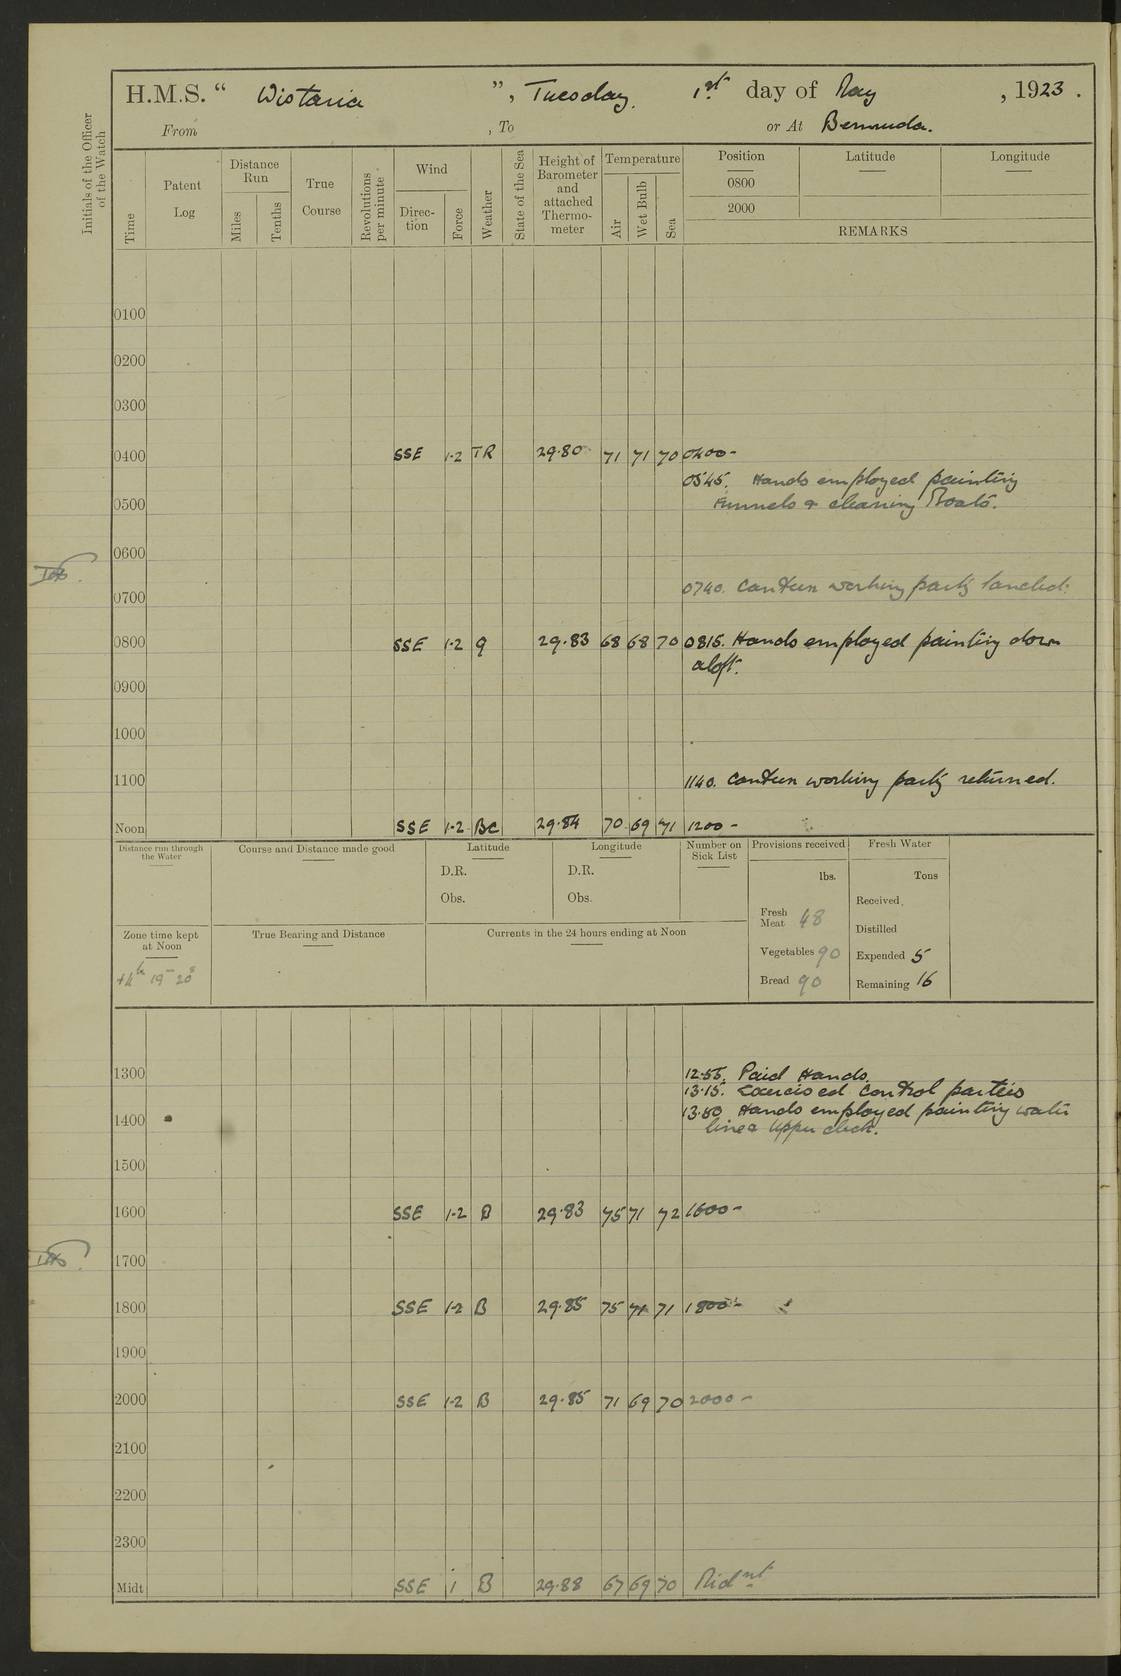 H.M.S. “ Wistaria ”, Tuesday, 1st day of May, 1923.
From , To or At Bermuda.
Initials of the Officer
of the Watch
Time
Patent
Log
Distance
Run
Miles
Tenths
True
Course
Revolutions
per minute
Wind
Direc-
tion
Force
Weather
State of the Sea
Height of
Barometer
and
attached
Thermo-
meter
Temperature
Air
Wet Bulb
Sea
Position Latitude Longitude
0800
2000
REMARKS
0100
0200
0300
0400 SSE 1-2 TR 29.80 71 71 70 0400 -
0545. Hands employed painting
0500 Funnels & cleaning Boats.
0600
0740. Canteen working party landed.
0700
0800 SSE 1-2 q 29.83 68 68 70 0815. Hands employed painting down
aloft.
0900
1000
1100 1140. Canteen working party returned.
Noon SSE 1-2 BC 29.84 70 69 71 1200 -
Distance run through
the Water
Course and Distance made good
Latitude
D.R.
Obs.
Longitude
D.R.
Obs.
Number on
Sick List
Provisions received
lbs.
Fresh
Meat 48
Vegetables 90
Bread 90
Fresh Water
Tons
Received
Distilled
Expended 5
Remaining 16
Zone time kept
at Noon
+4h 19m 20s
True Bearing and Distance
Currents in the 24 hours ending at Noon
1300 12.55. Paid Hands.
13.15. Exercised Control parties
13.50 Hands employed painting water
1400 line & Upper deck.
1500
1600 SSE 1-2 B 29.83 75 71 72 1600 -
1700
1800 SSE 1-2 B 29.85 75 71 71 1800 -
1900
2000 SSE 1-2 B 29.85 71 69 70 2000 -
2100
2200
2300
Midt SSE 1 B 29.88 67 69 70 Midnt